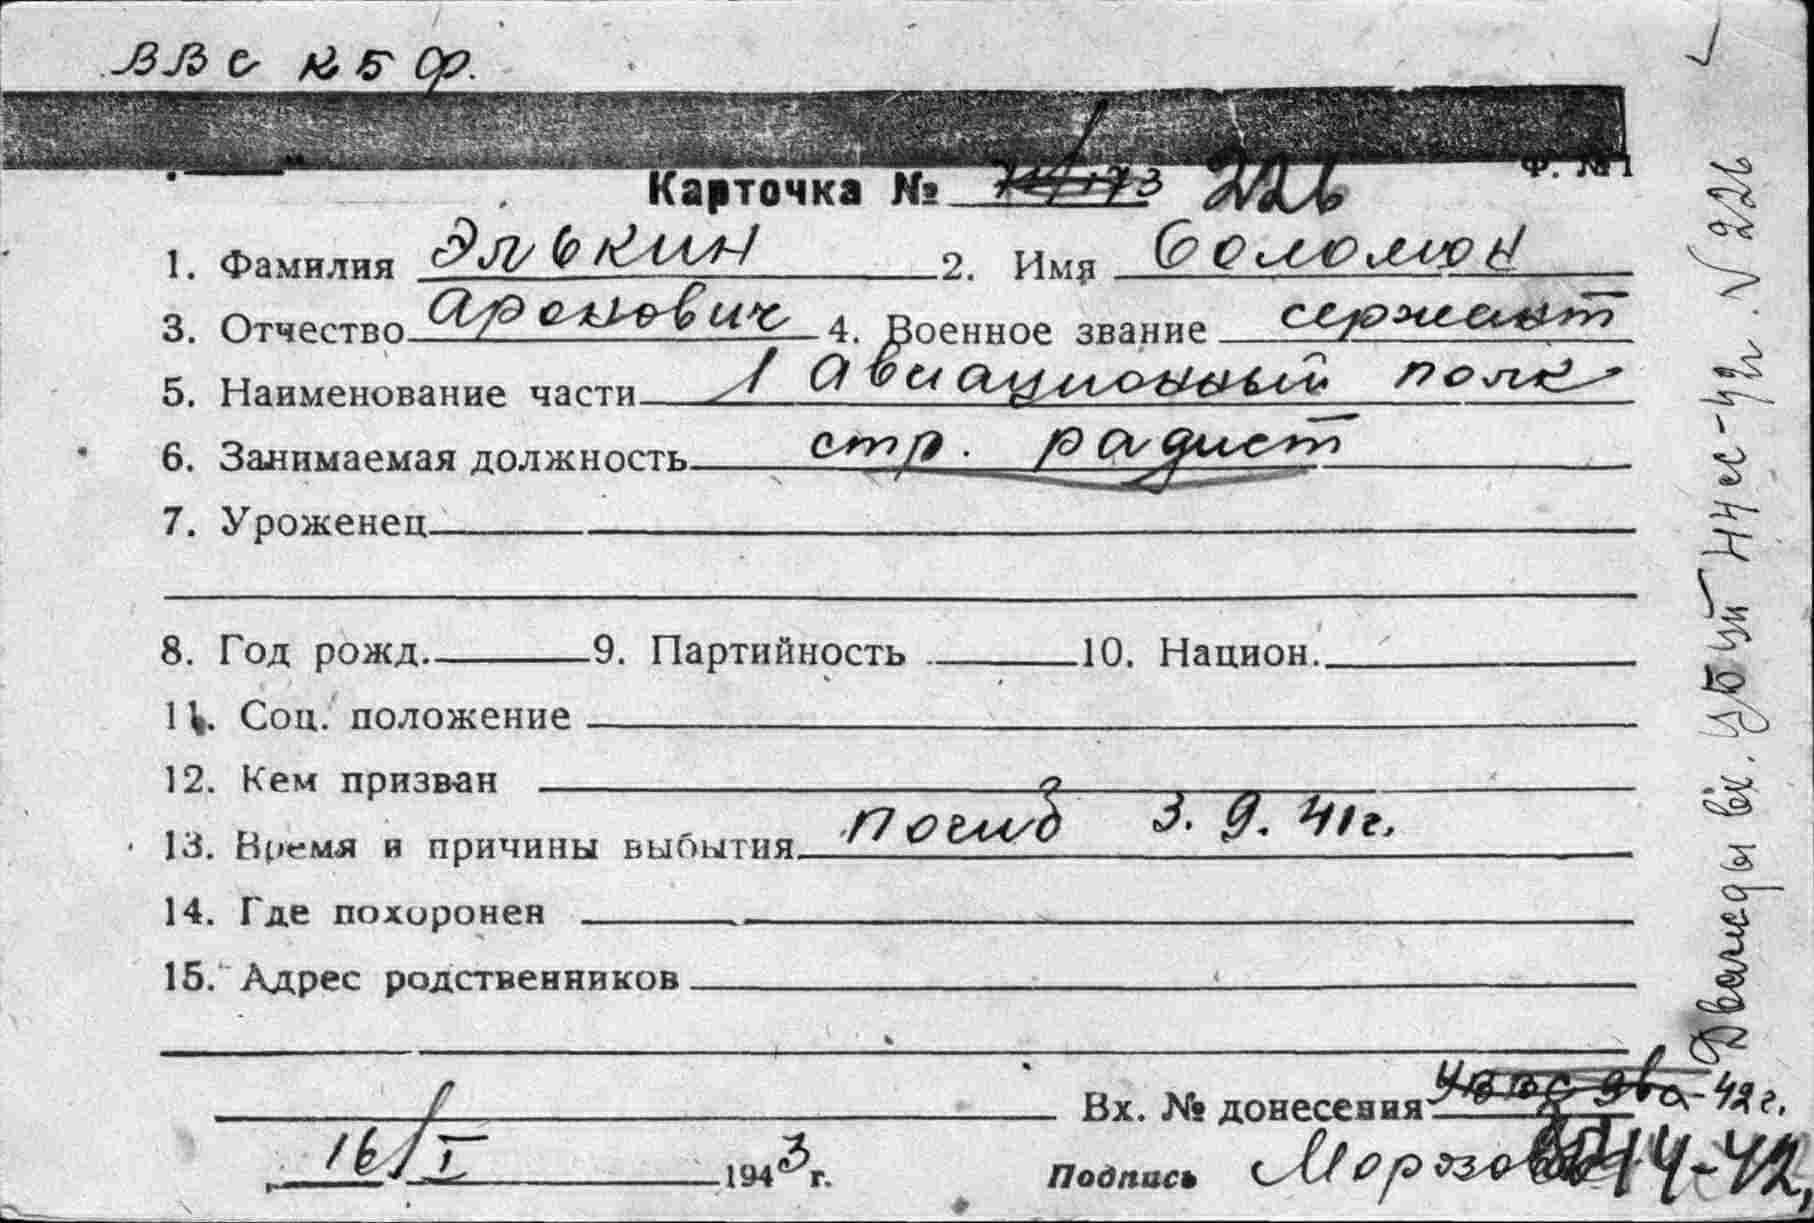 ВВС КБФ.
Ф. №1
Карточка № 226
1. Фамилия Элькин 2. Имя Соломон
3. Отчество Аронович 4. Военное звание сержант
5. Наименование части 1 Авиационный полк
6. Занимаемая должность стр. радист
7. Уроженец
8. Год рожд. 9. Партийность 10. Национ.
11. Соц. положение
12. Кем призван
13. Время и причины выбытия погиб 3.9.41г.
14. Где похоронен
15. Адрес родственников
Вх. № донесения 42г.
16/I 1943 г. Подпись Морозова 14-42
Дважды вх. убит 44сс-42г. № 226